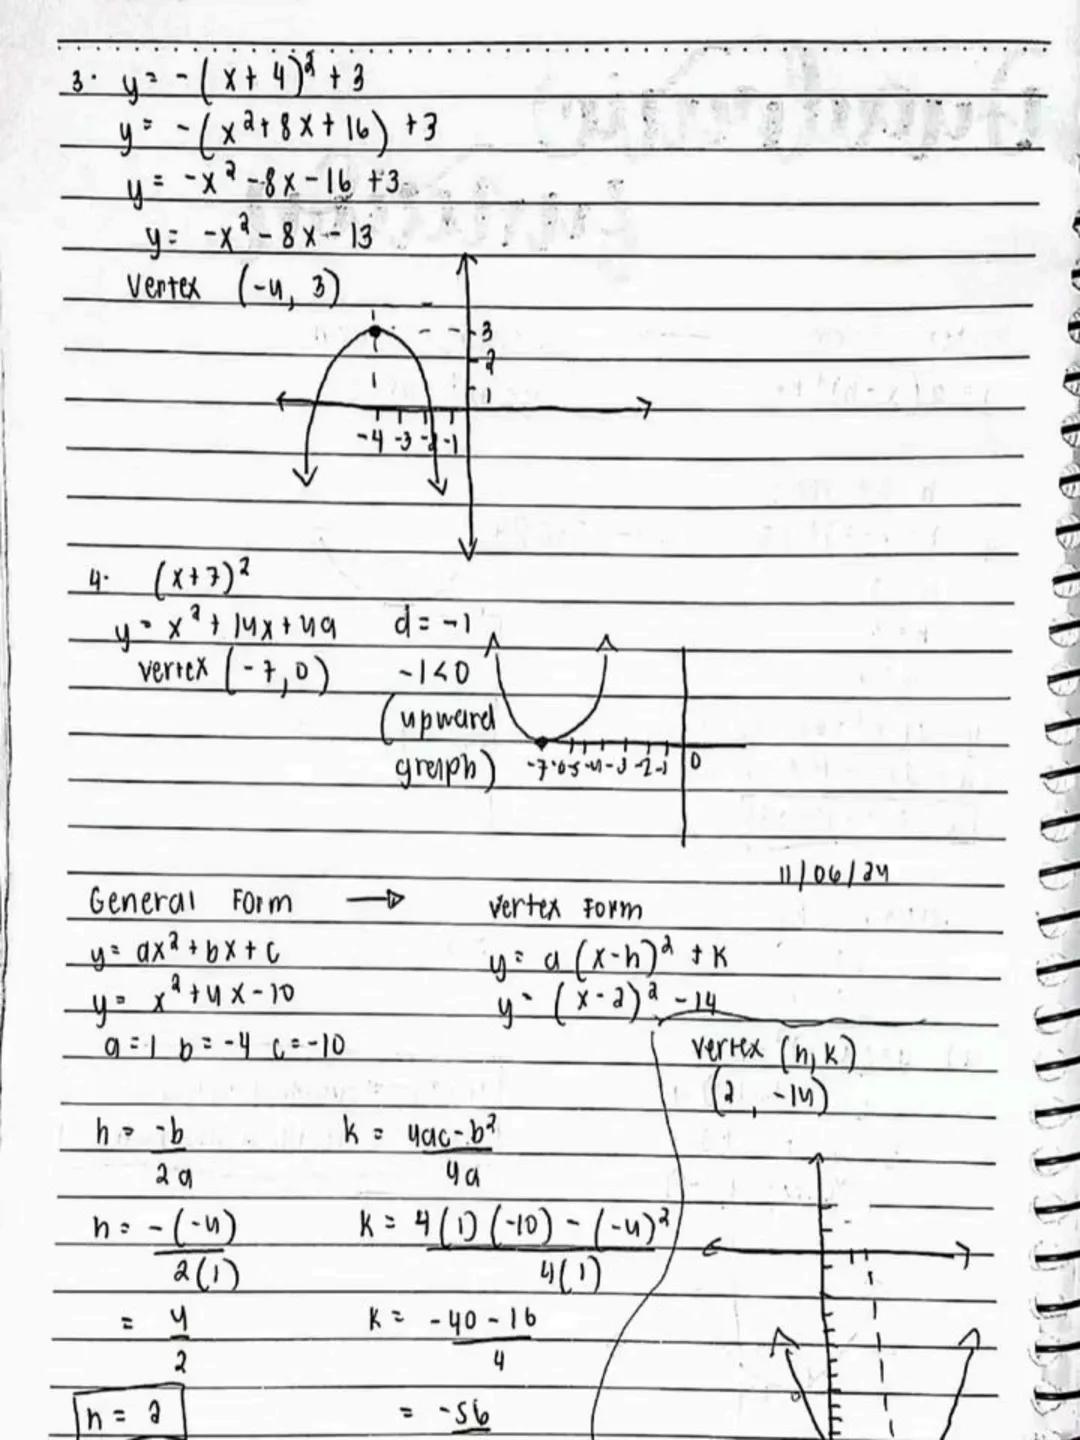 3. y = -(x + 4)² + 3
y = -(x² + 8x + 16) + 3
y = -x² - 8x - 16 + 3
y = -x² - 8x - 13
Vertex (-4, 3)
3
2
1
-4 -3 -2 -1
4. (x+7)²
y = x² + 14x + 49 d = -1
vertex (-7, 0) -1 < 0
(upward
graph)
-7 -6 -5 -4 -3 -2 -1 0
11/06/24
General Form → vertex Form
y = ax² + bx + c y = a (x-h)² + k
y = x² + 4x - 10 y = (x - 2)² - 14
a = 1 b = -4 c = -10 vertex (h, k)
(2, -14)
h = -b/2a k = 4ac - b²/4a
h = -(-4)/2(1) k = 4(1)(-10) - (-4)²/4(1)
= 4/2 k = -40 - 16/4
h = 2 = -56